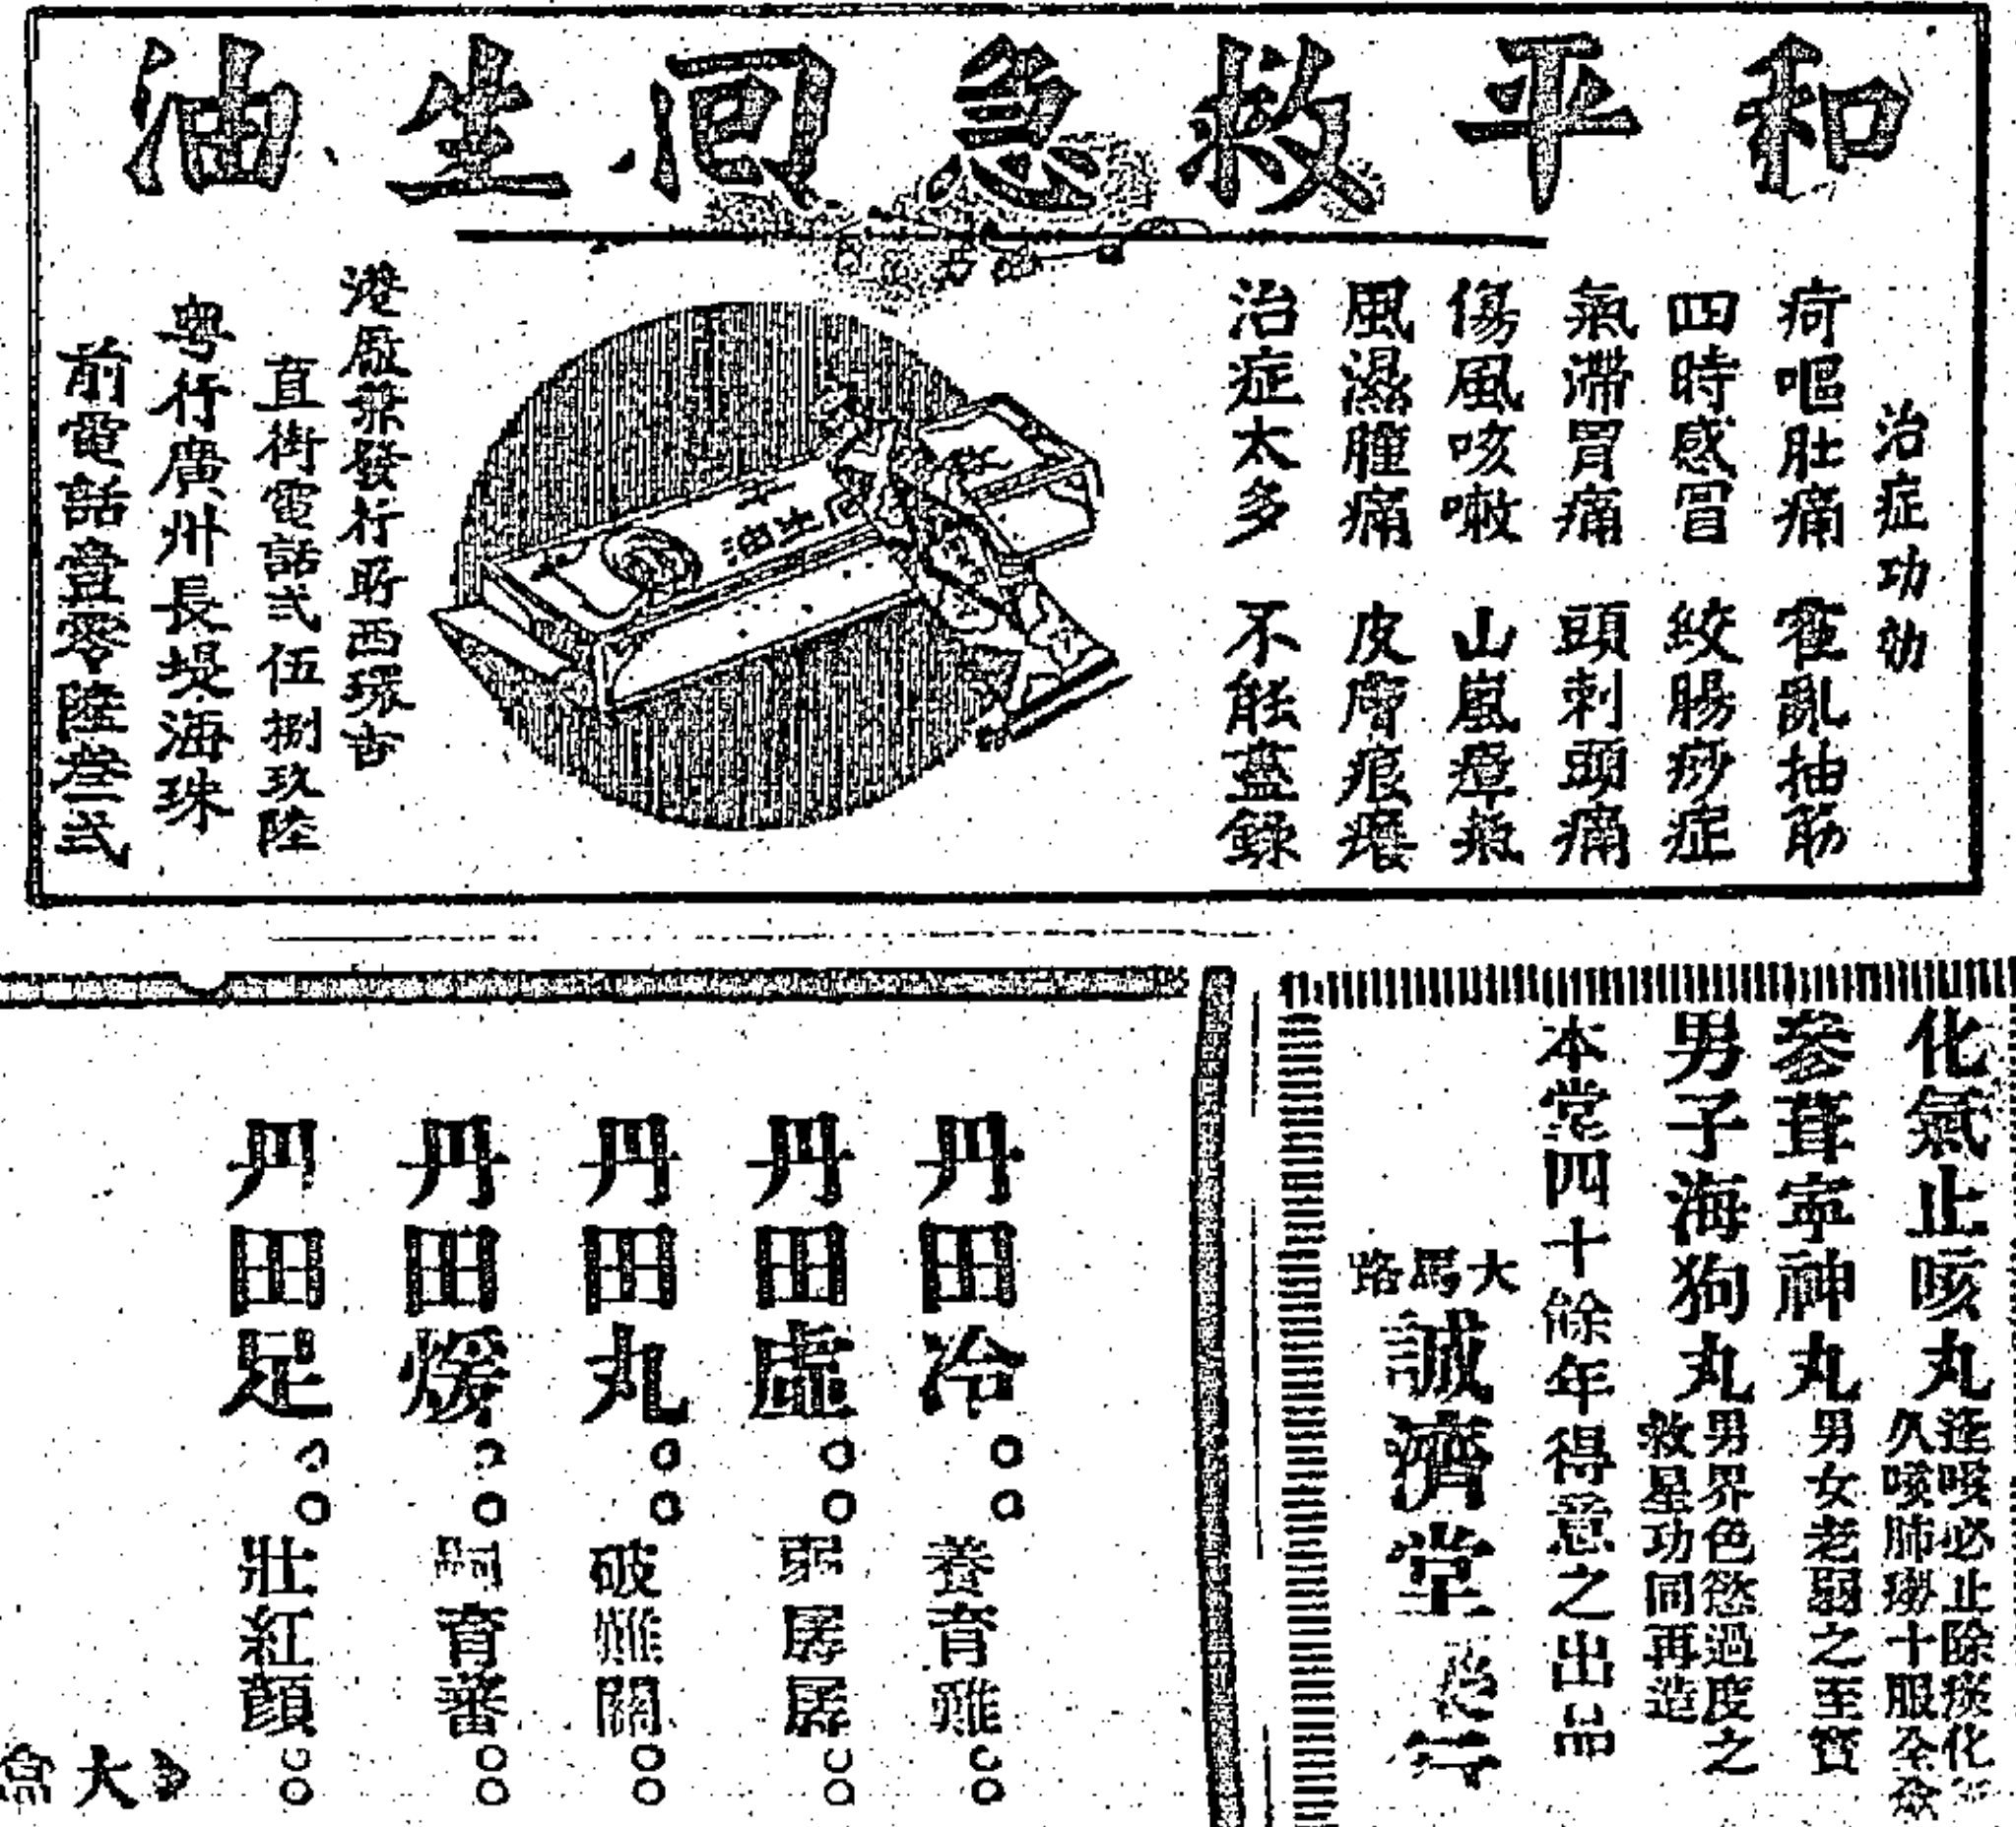 和平救急回生油
治症功効
疴嘔肚痛 霍亂抽筋
四時感冒 絞腸痧症
氣滯胃痛 頭刺頭痛
傷風咳嗽 山嵐瘴氣
風濕腫痛 皮膚痕癢
治症太多 不能盡錄
港厰兼發行所西環吉
直街電話弍伍捌玖陸
粤行廣州長堤海珠
前電話壹零陸叁弍
化氣止咳丸
逢咳必止除痰化
久咳肺癆十服全
參茸寧神丸
男女老弱之至寶
男子海狗丸
男界色慾過度之
救星功同再造
本堂四十餘年得意之出品
大馬路
誠濟堂
丹田冷。。養育難。。
丹田虛。。
丹田丸。。破難關。。
丹田煖。。嗣育蕃。。
丹田足。。壯紅顔。。
大